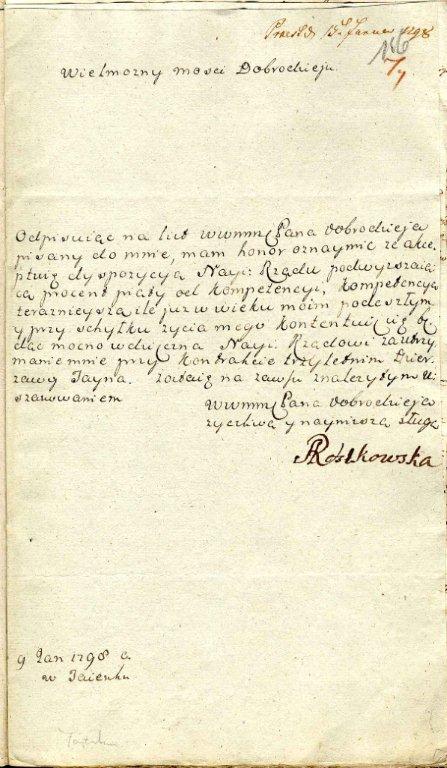 Praes. d. 15t. Januar 1798
156
7/4
Wielmozny mosci Dobrodzieju
Odpisuiąc na list wwmm Pana dobrodzieja
pisany do mnie, mam honor oznaymic ze akce
ptuię dyspozycyą Nayi: Rządu podwyzszaią
cą procent piąty od Kompetencyi, Kompetencyą
teraznieyszą ile juz w wieku moim podeszłym
y przy schyłku zycia mego kontentuię się bę
dąc mocno wdzięczna Nayi: Rządowi za utrzy
manie mnie przy kontrakcie trzyletnim Dzier
zawy Jayna. zostaię na zawsze z nalezytym u
szanowaniem
wwmm Pana dobrodzieja
zyczliwą y nayniszą sługą
Rostkowska
9 Jan 1798 a
w Jaienku